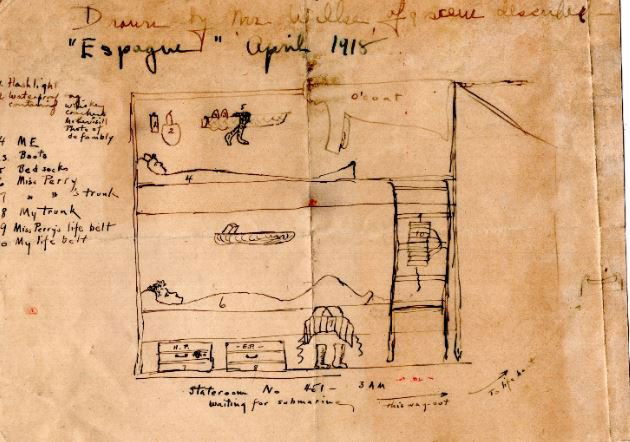 Drawn by Mrs of a scene described
"Espagne" April 1915
Flashlight
waterproof bag
containing whiskey
crackers
Photo of
de fambly
4 ME
3. Boots
5 Bedsocks
6 Miss Perry
7 " " 's trunk
8 My trunk
9 Miss Perry's life belt
10 My life belt
O'coat
2
5
4
10
6
H.P.
E.P.
7
8
Stateroom No 451 - 3 AM
waiting for submarine
this way out
To life boat